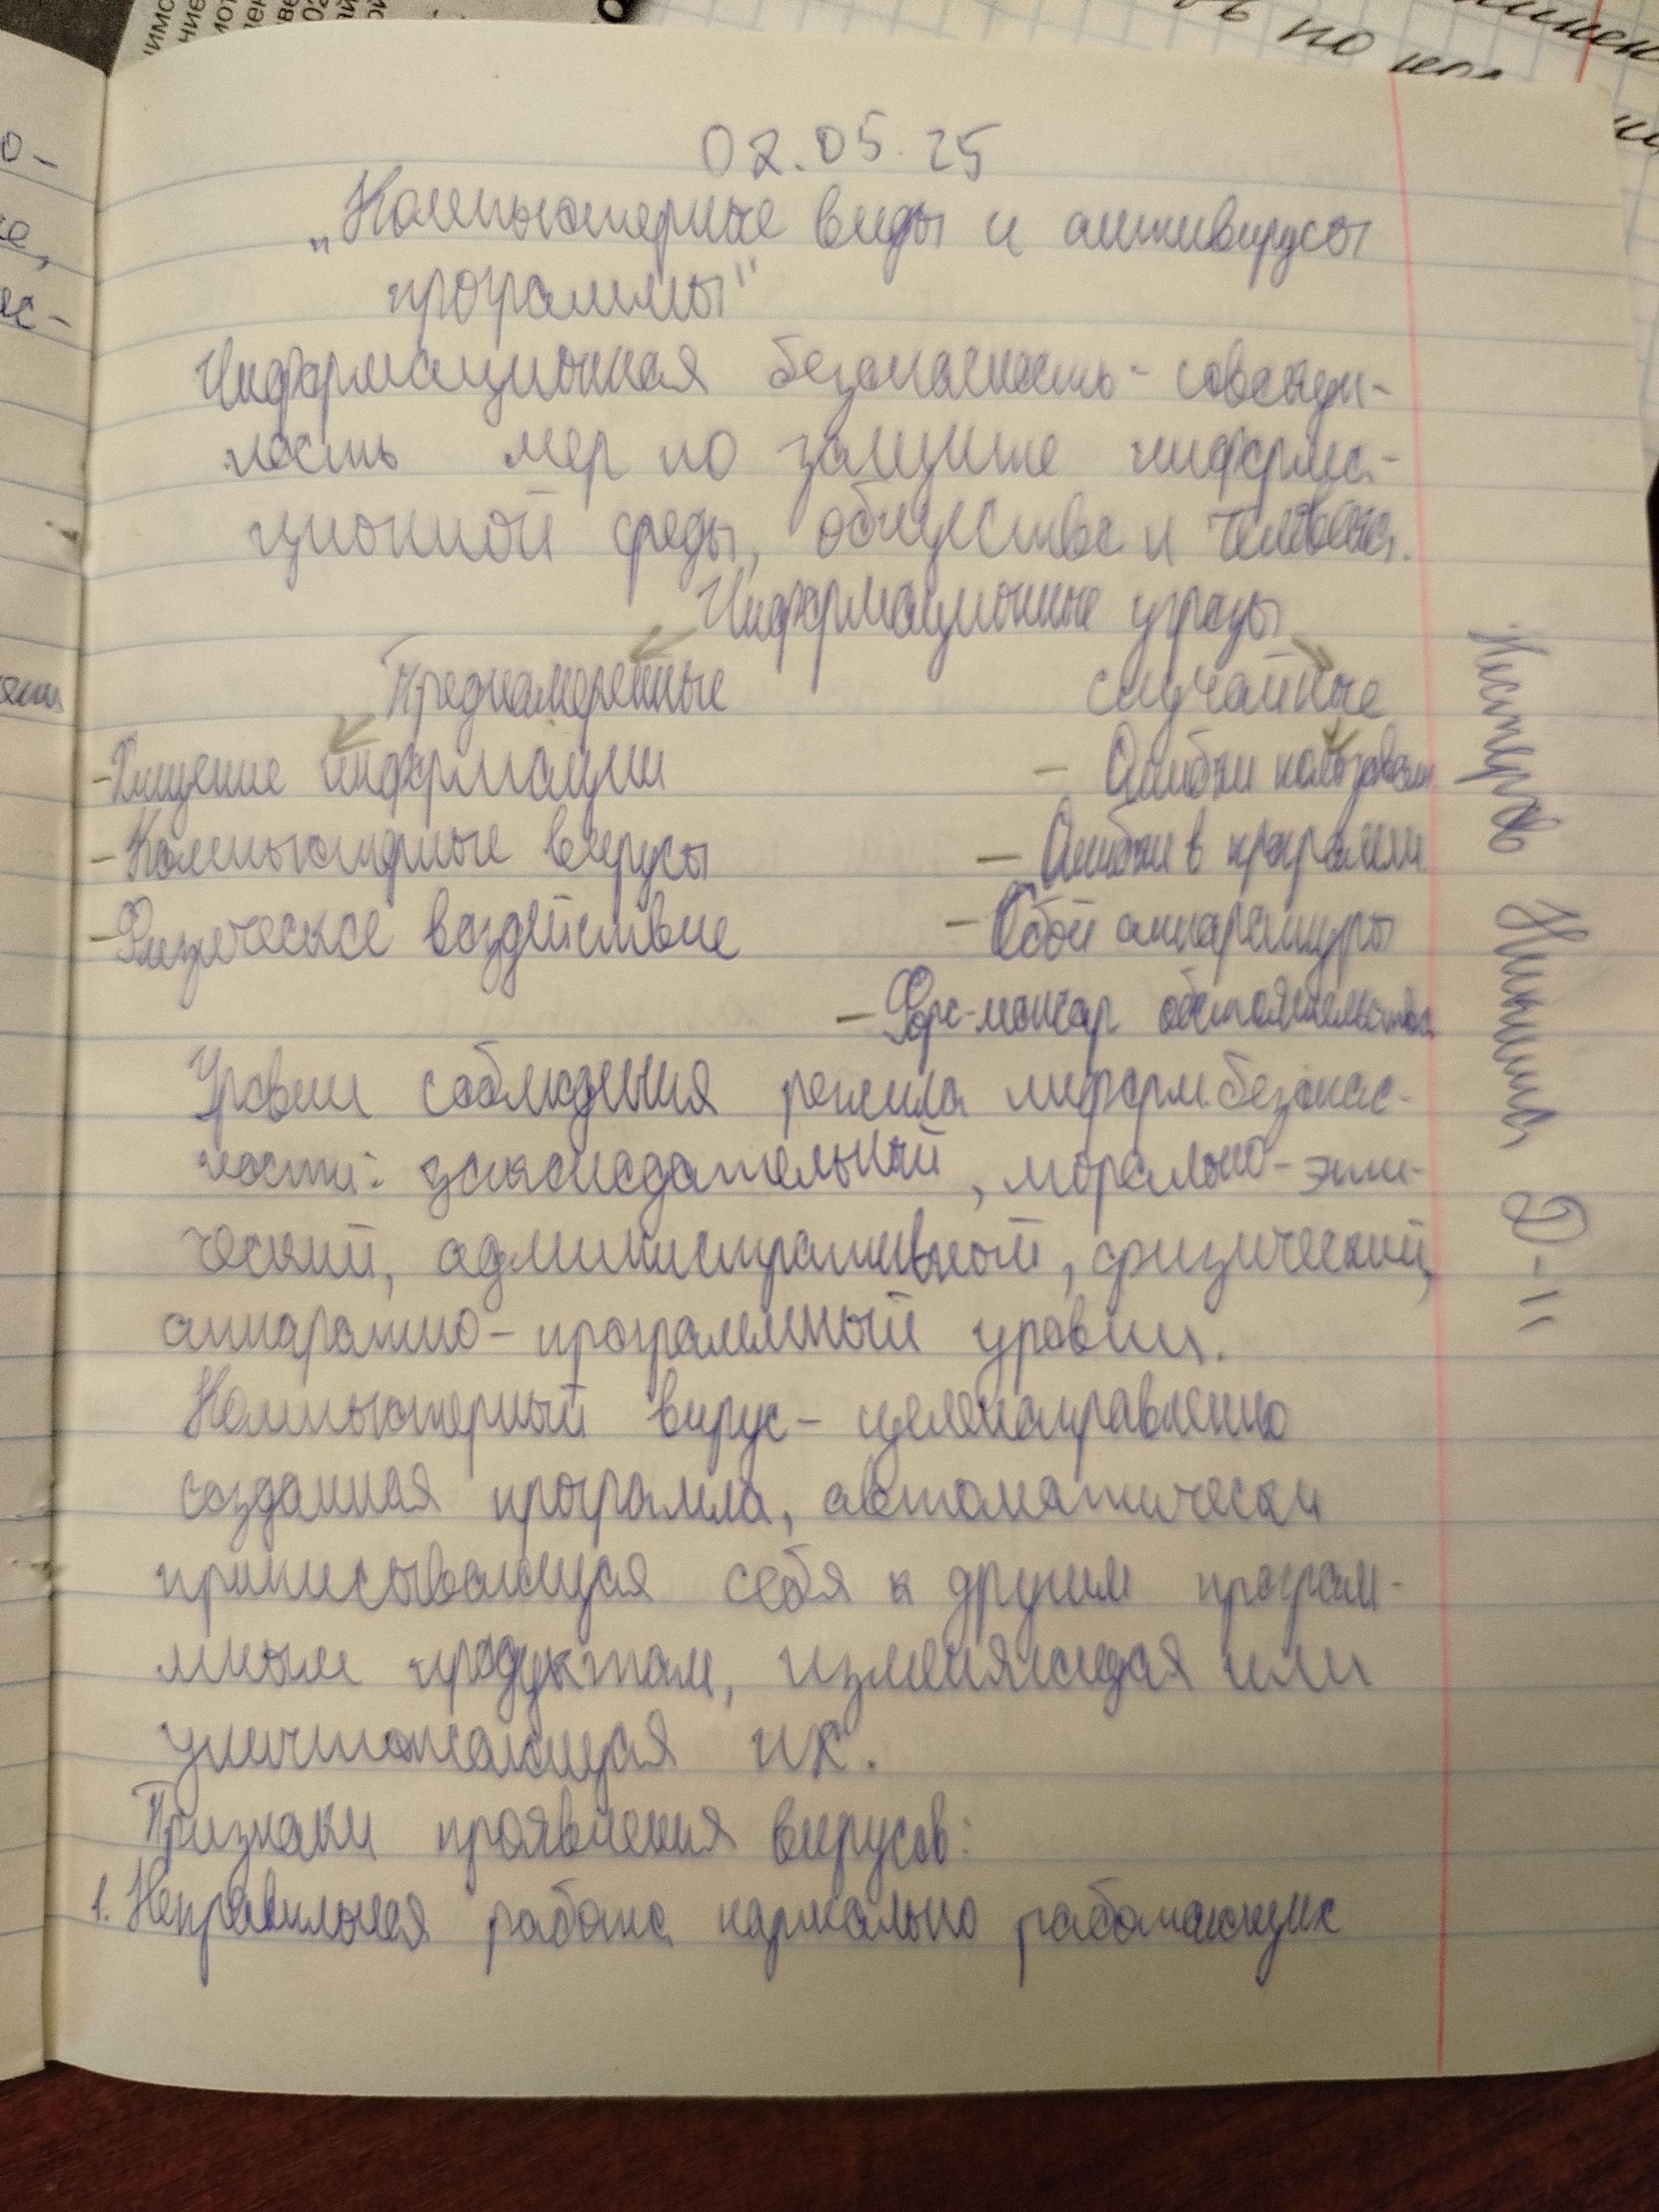 02.05.25
„Компьютерные виды и антивирусы
программы"
Информационная безопасность - совокуп-
ность мер по защите информа-
ционной среды, общества и человека.
Информационные угрозы
Преднамеренные случайные
- Хищение информации - Ошибки пользоват.
- Компьютерные вирусы - Ошибки в программ.
- Физическое воздействие - Сбой аппаратуры
- Форс-мажор обстоятельства
Уровни соблюдения режима информ. безопас-
ности: законодательный, морально-эти-
ческий, административный, физический,
аппаратно-программный уровни.
Компьютерный вирус - целенаправленно
созданная программа, автоматически
приписывающая себя к другим програм-
мным продуктам, изменяющая или
уничтожающая их.
Признаки проявления вирусов:
1. Неправильная работа нормально работающих
Нестеров Никита Э-11
по